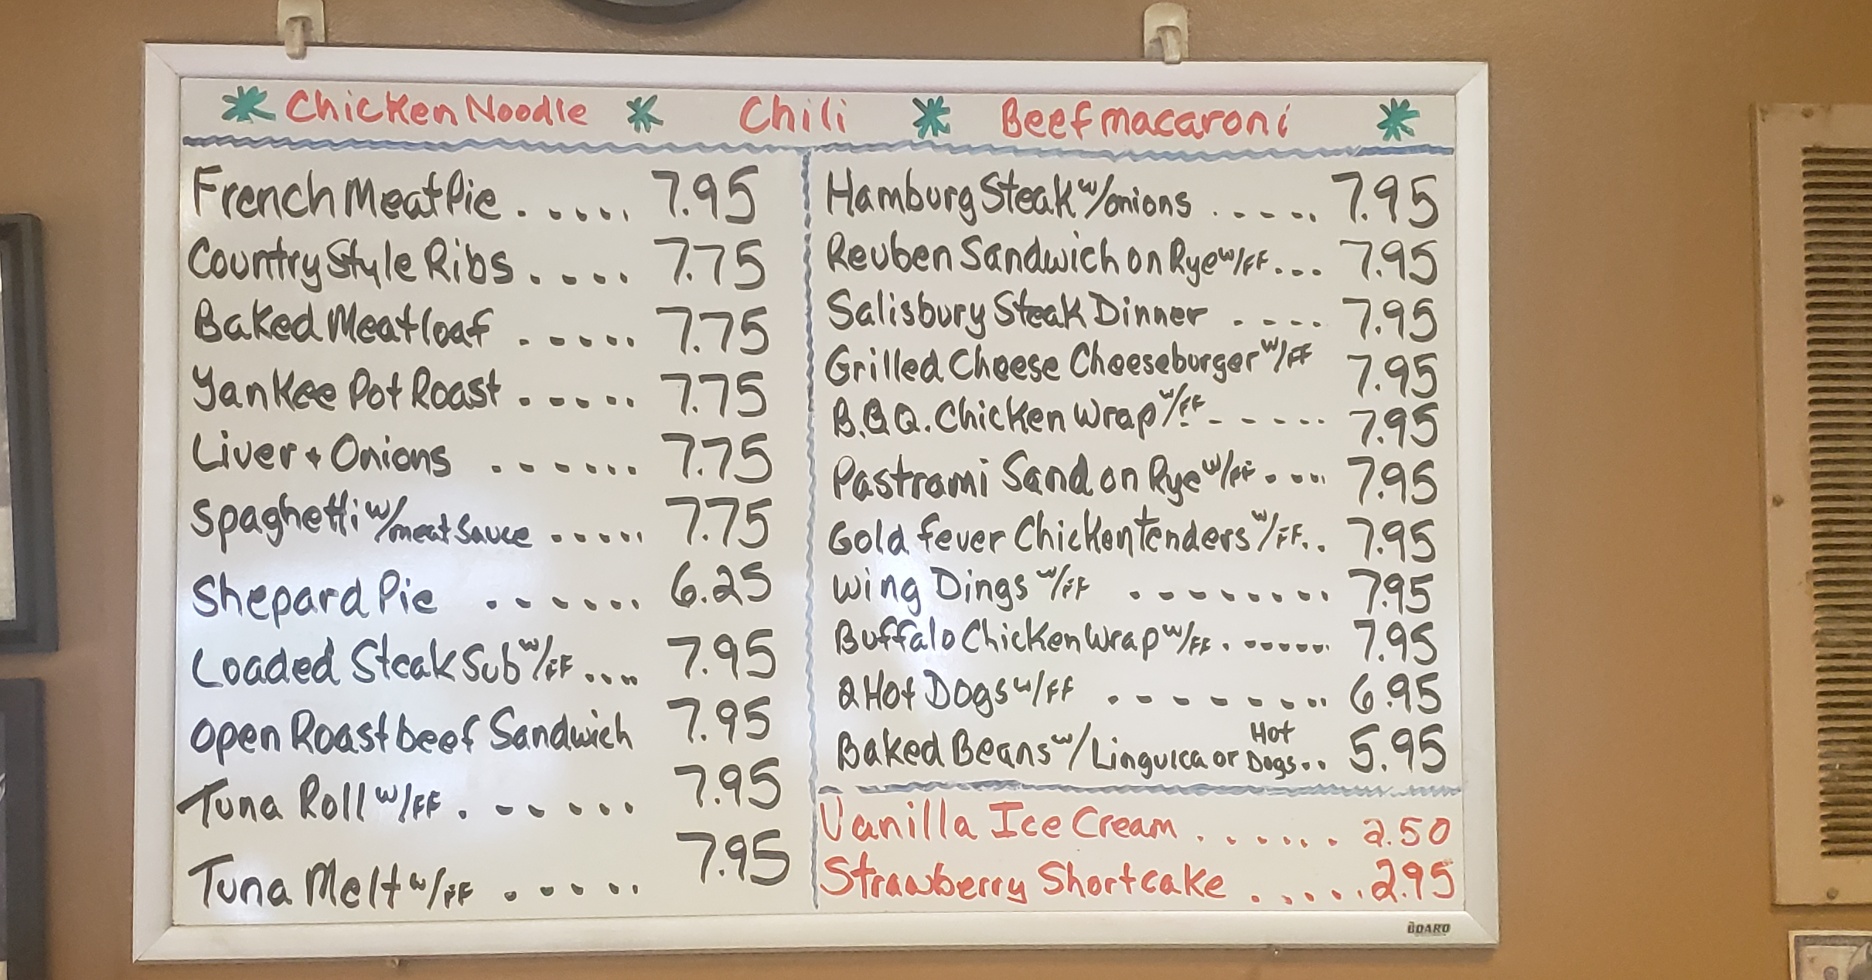 * Chicken Noodle * Chili * Beef macaroni *
French Meat Pie ..... 7.95
Country Style Ribs .... 7.75
Baked Meatloaf ..... 7.75
Yankee Pot Roast ..... 7.75
Liver + Onions ...... 7.75
Spaghetti w/meat Sauce ..... 7.75
Shepard Pie ...... 6.25
Loaded Steak Sub w/FF .... 7.95
Open Roast beef Sandwich 7.95
Tuna Roll w/FF ...... 7.95
Tuna Melt w/FF ..... 7.95
Hamburg Steak w/onions ..... 7.95
Reuben Sandwich on Rye w/FF ... 7.95
Salisbury Steak Dinner .... 7.95
Grilled Cheese Cheeseburger w/FF 7.95
B.B.Q. Chicken Wrap w/FF ..... 7.95
Pastrami Sand on Rye w/FF .... 7.95
Gold fever Chicken tenders w/FF.. 7.95
Wing Dings w/FF ........ 7.95
Buffalo Chicken Wrap w/FF ...... 7.95
2 Hot Dogs w/FF ........ 6.95
Baked Beans w/Linguica or Hot Dogs.. 5.95
Vanilla Ice Cream ...... 2.50
Strawberry Shortcake ..... 2.95
BOARD